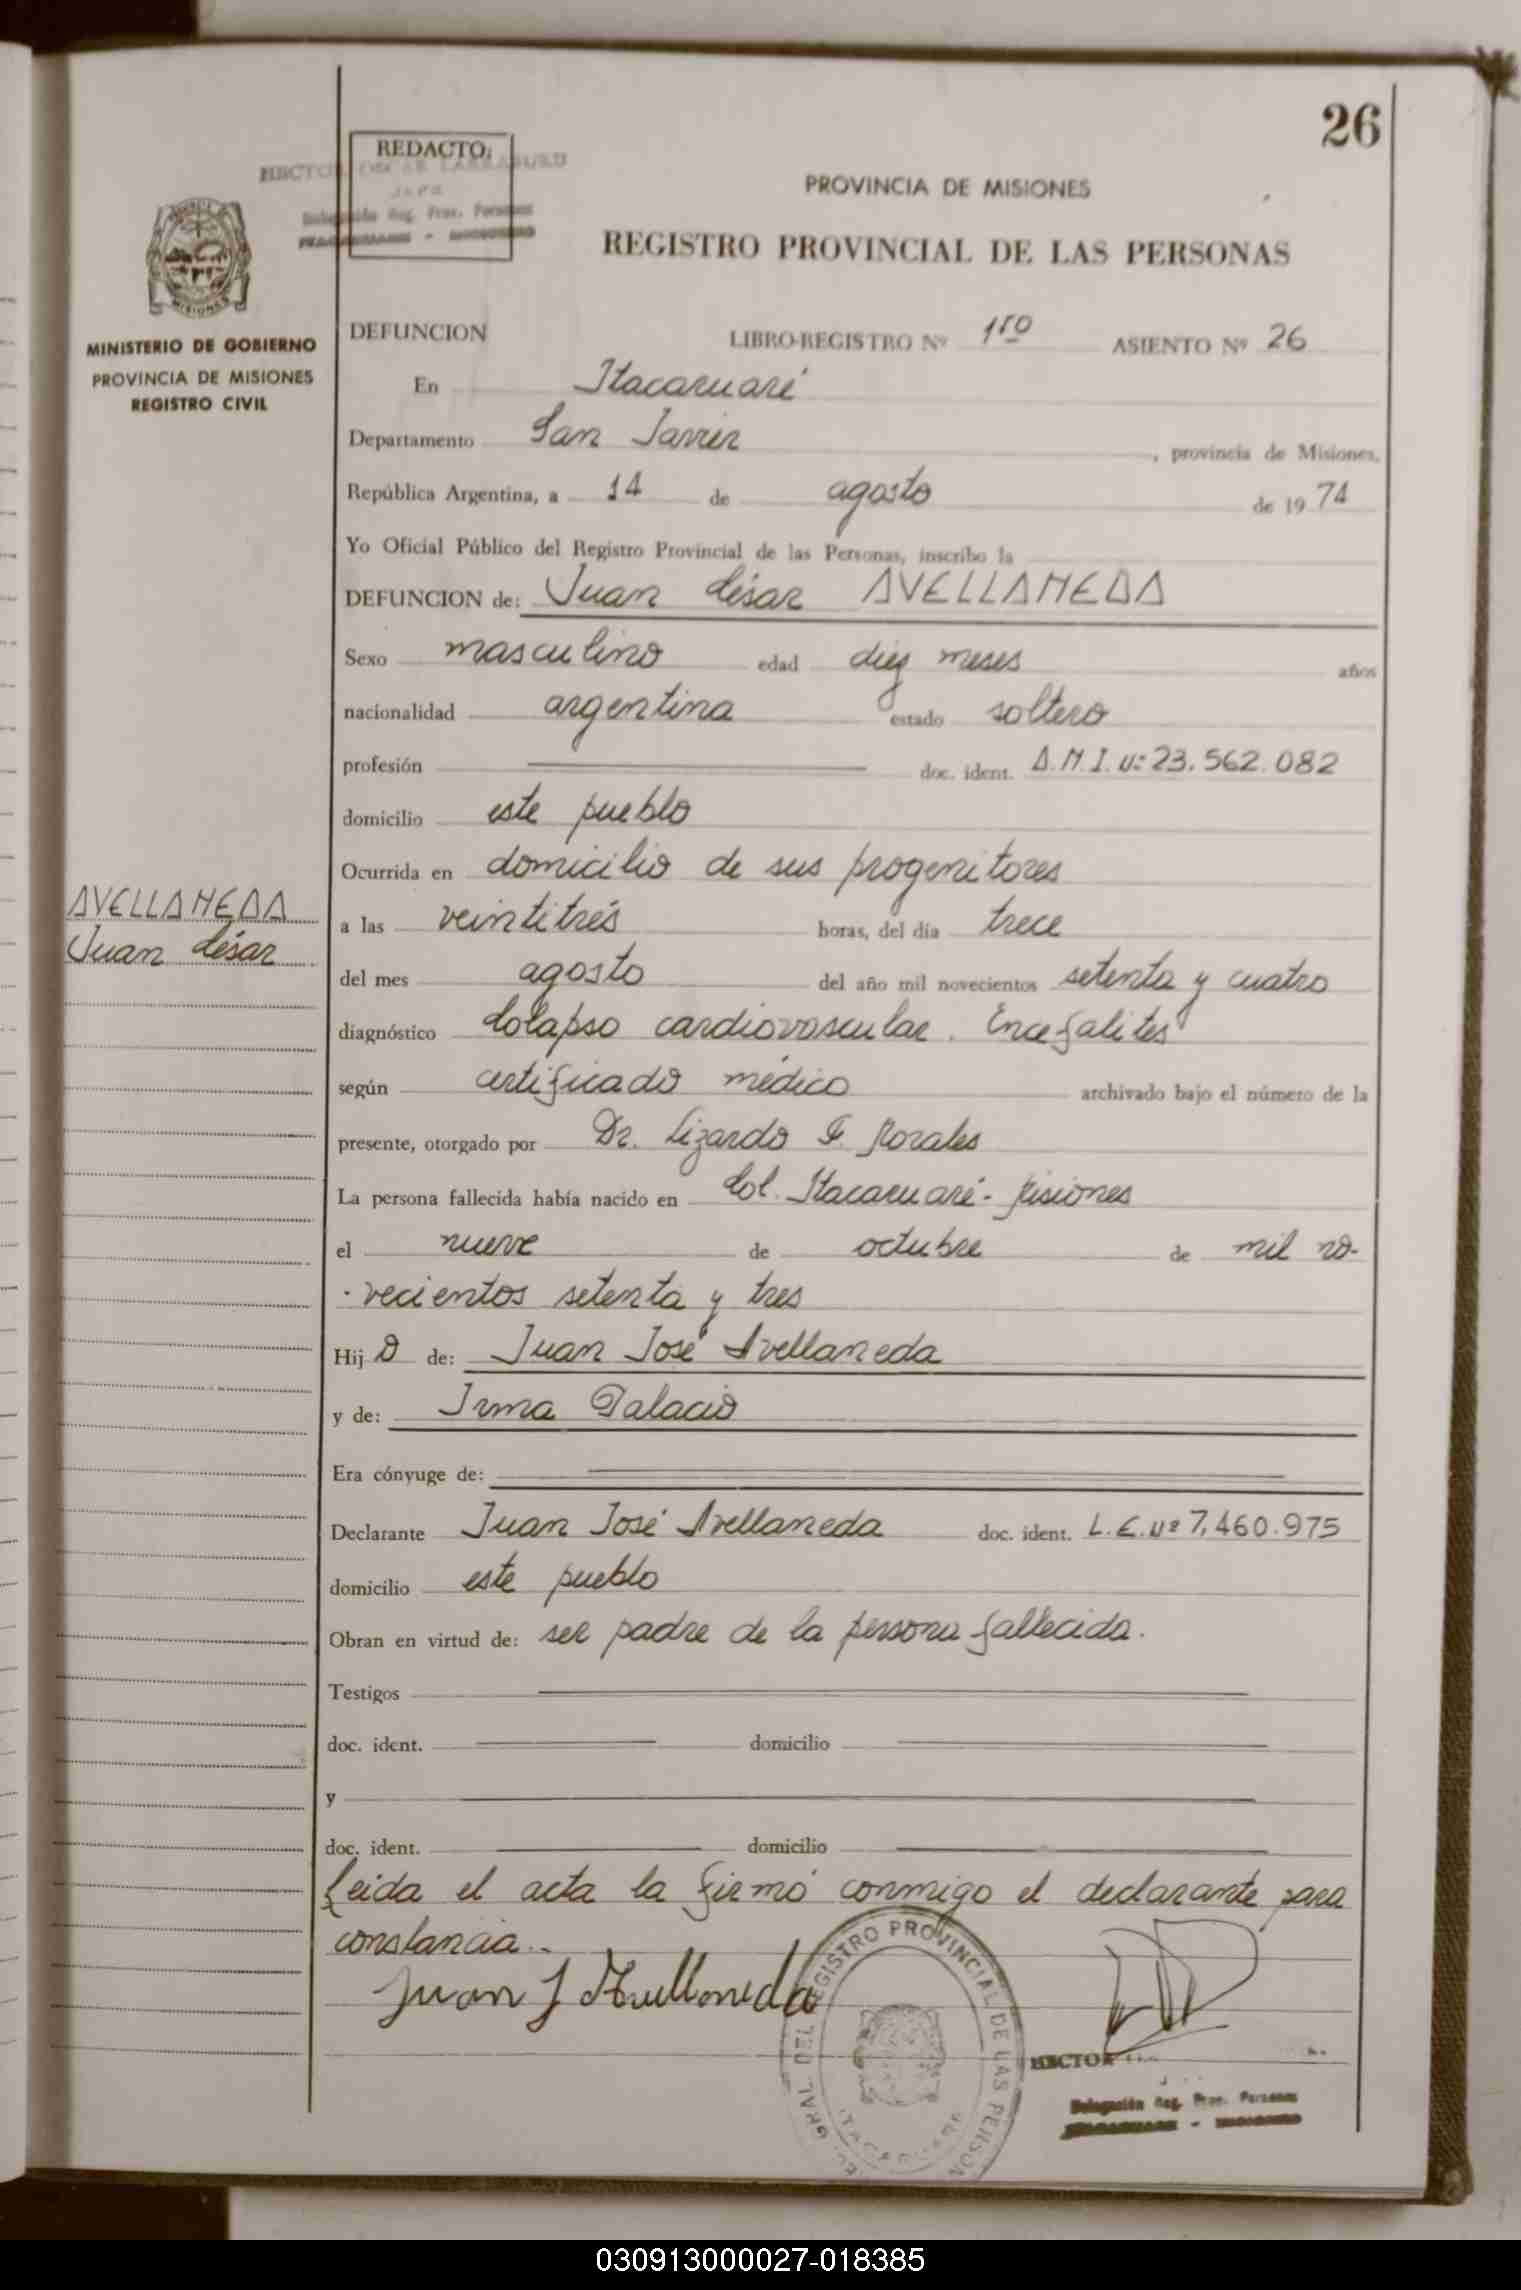 26
REDACTO:
HECTOR OSCAR LARRABURU
JEFE
Delegación Reg. Prov. Personas
ITACARUARE - MISIONES
PROVINCIA DE MISIONES
REGISTRO PROVINCIAL DE LAS PERSONAS
MISIONES
MINISTERIO DE GOBIERNO
PROVINCIA DE MISIONES
REGISTRO CIVIL
DEFUNCION LIBRO-REGISTRO Nº 1ro ASIENTO Nº 26
En Itacaruaré
Departamento San Javier, provincia de Misiones,
República Argentina, a 14 de agosto de 1974
Yo Oficial Público del Registro Provincial de las Personas, inscribo la
DEFUNCION de: Juan César AVELLANEDA
Sexo masculino edad diez meses años
nacionalidad argentina estado soltero
profesión doc. ident. D.N.I. Nº 23.562.082
domicilio este pueblo
Ocurrida en domicilio de sus progenitores
AVELLANEDA
Juan César
a las veintitrés horas, del día trece
del mes agosto del año mil novecientos setenta y cuatro
diagnóstico Colapso cardiovascular. Encefalites
según certificado médico archivado bajo el número de la
presente, otorgado por Dr. Lizardo F. Morales
La persona fallecida había nacido en Col. Itacaruaré - Misiones
el nueve de octubre de mil no-
-vecientos setenta y tres
Hijo de: Juan José Avellaneda
y de: Irma Palacio
Era cónyuge de:
Declarante Juan José Avellaneda doc. ident. L.E. Nº 7.460.975
domicilio este pueblo
Obran en virtud de: ser padre de la persona fallecida.
Testigos
doc. ident. domicilio
y
doc. ident. domicilio
Leída el acta la firmó conmigo el declarante para
constancia.-
Juan J Avellaneda
GRAL. DEL REGISTRO PROVINCIAL DE LAS PERSON
ITACARUARE
HECTOR
Delegación Reg. Prov. Personas
ITACARUARE - MISIONES
030913000027-018385